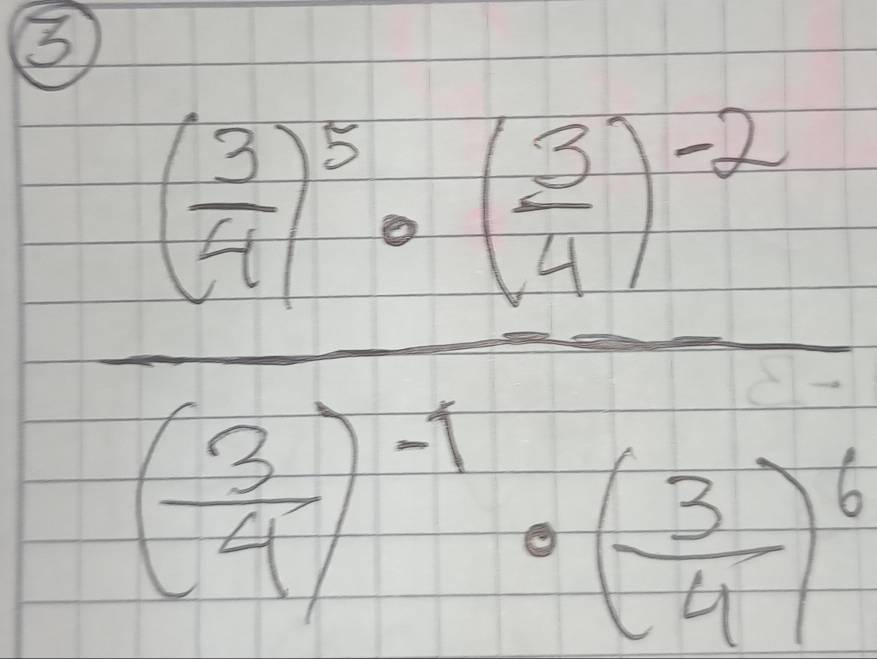 3
(3/4)^5 • (3/4)^-2
(3/4)^-1 • (3/4)^6